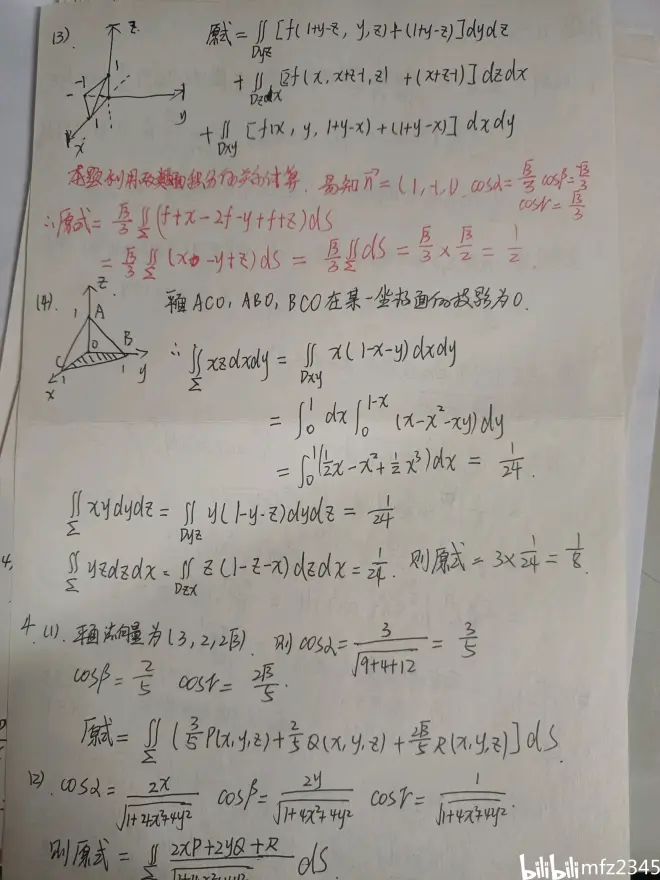 (3). z 原式=∬Dyz [f(1+y-z, y,z)+(1+y-z)]dydz
-1 1 y x 1 +∬Dzdx [2f(x, x+z-1,z) +(x+z-1)] dzdx
+∬Dxy [f(x, y, 1+y-x)+(1+y-x)] dxdy
本题利用两类曲面积分的关系计算. 易知n⃗=(1,-1,1). cosα=√3/3 cosβ=-√3/3
cosγ=√3/3
∴原式=√3/3∬Σ(f+x-2f-y+f+z)dS
=√3/3∬Σ(x-y+z)dS = √3/3∬Σ dS = √3/3×√3/2 = 1/2.
(4). z 1 A O B C 1 1 x y 平面ACO, ABO, BCO在某一坐标面的投影为0.
∴∬Σ xzdxdy = ∬Dxy x(1-x-y)dxdy
=∫₀¹dx∫₀¹⁻ˣ (x-x²-xy)dy
=∫₀¹(½x-x²+½x³)dx = 1/24.
∬Σ xydydz=∬Dyz y(1-y-z)dydz=1/24
∬Σ yzdzdx=∬Dzx z(1-z-x)dzdx=1/24. 则原式=3×1/24=1/8.
4. (1). 平面法向量为(3,2,2√3). 则cosα=3/√(9+4+12)=3/5
cosβ=2/5 cosγ=2√3/5.
原式=∬Σ (3/5P(x,y,z)+2/5Q(x,y,z)+2√3/5R(x,y,z)]dS.
(2). cosα=2x/√(1+4x²+4y²) cosβ=2y/√(1+4x²+4y²) cosγ=1/√(1+4x²+4y²).
则原式=∬Σ (2xP+2yQ+R)/√(1+4x²+4y²) dS
bilibili mfz2345